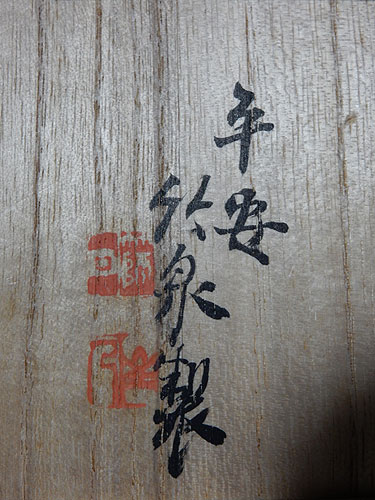 平安
竹泉製